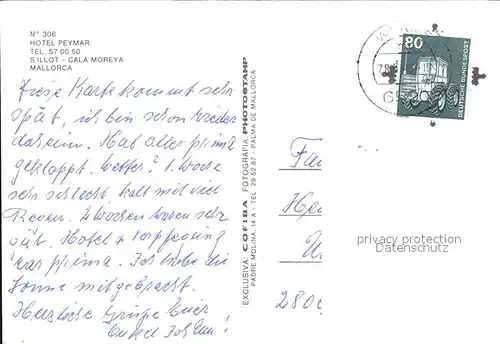 N° 306
HOTEL PEYMAR
TEL. 57 00 50
SILLOT - CALA MOREYA
MALLORCA
Diese Karte kommt sehr
spät, ich bin schon wieder
daheim. Hat alles prima
geklappt. Wetter? 1. Woche
sehr schlecht, kalt mit viel
Regen. 2 Wochen waren sehr
gut. Hotel + Verpflegung
war prima. Ich habe die
Sonne mitgebracht.
Herzliche Grüße Euer
Onkel Johann!
EXCLUSIVA: COFIBA FOTOGRAFIA PHOTOSTAMP
PADRE MOLINA, 14 A - TEL. 29 52 67 - PALMA DE MALLORCA
80
DEUTSCHE BUNDESPOST
Fa
He
280
privacy protection
Datenschutz